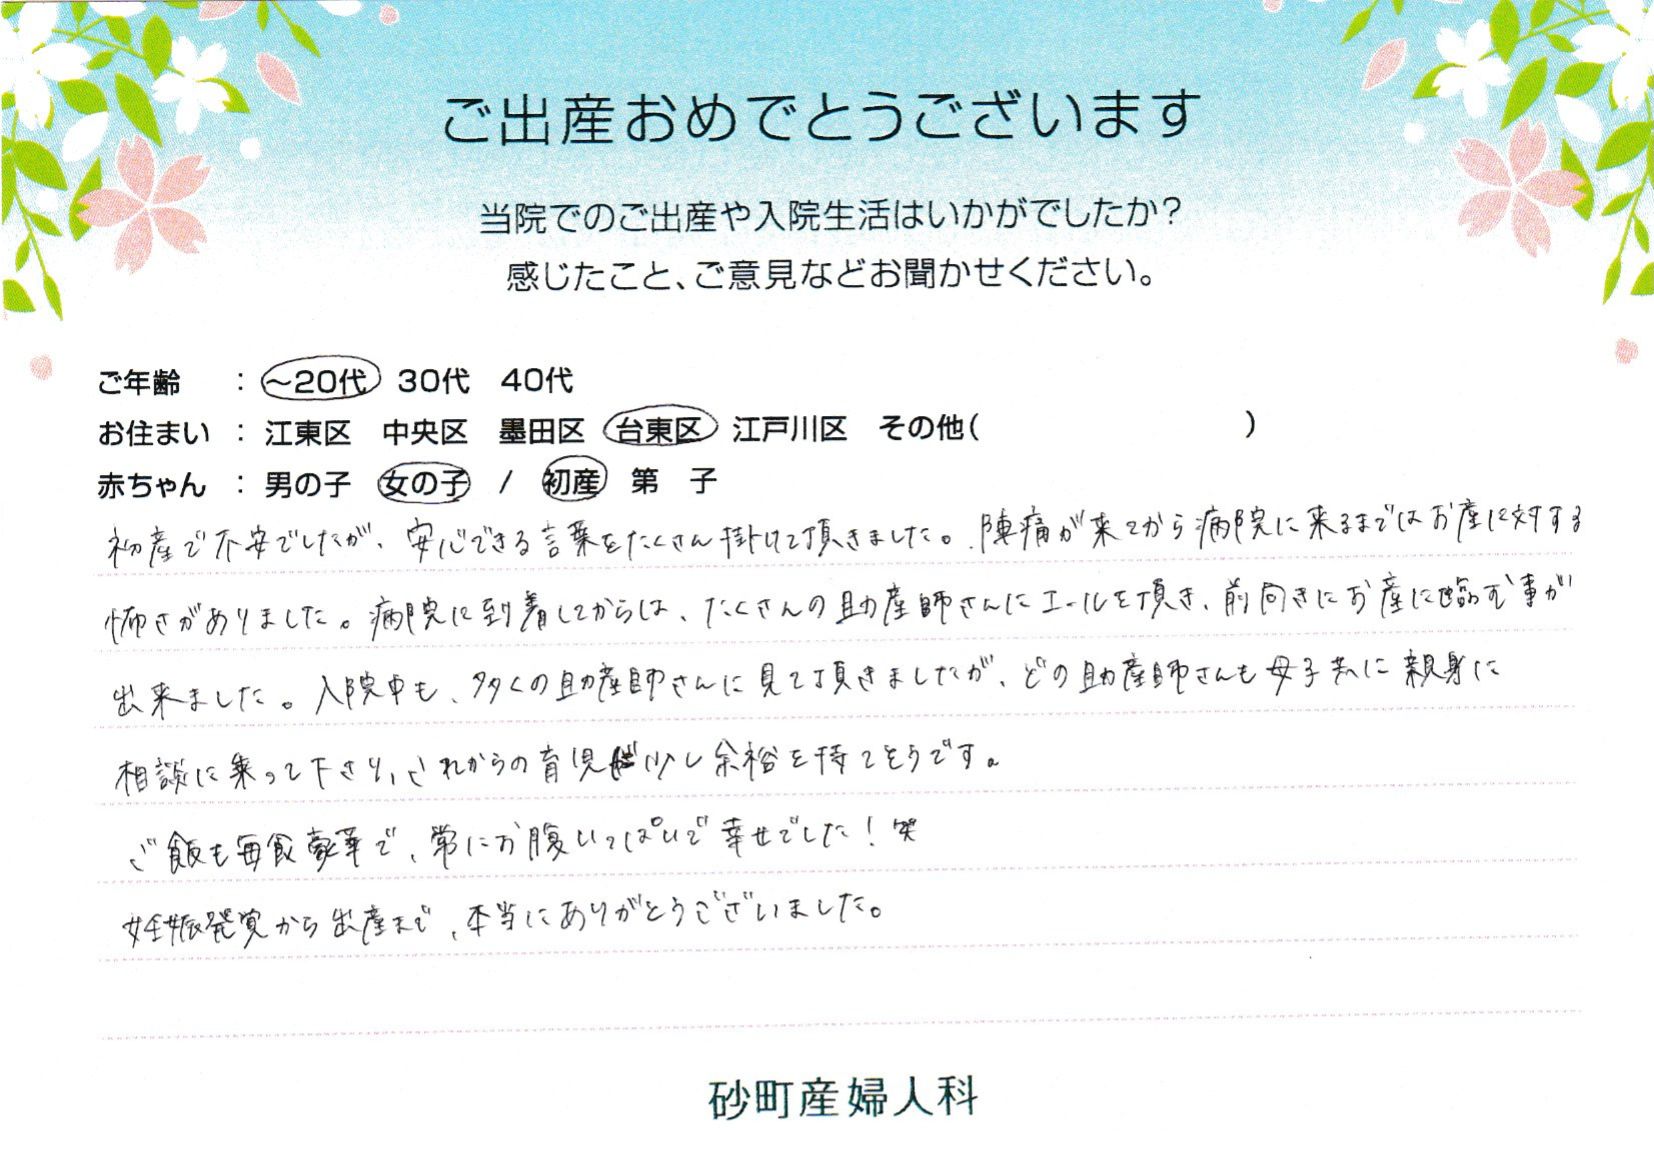 ご出産おめでとうございます
当院でのご出産や入院生活はいかがでしたか?
感じたこと、ご意見などお聞かせください。
ご年齢 : 〜20代 30代 40代
お住まい : 江東区 中央区 墨田区 台東区 江戸川区 その他( )
赤ちゃん : 男の子 女の子 / 初産 第 子
初産で不安でしたが、安心できる言葉をたくさん掛けて頂きました。陣痛が来てから病院に来るまではお産に対する
怖さがありました。病院に到着してからは、たくさんの助産師さんにエールを頂き、前向きにお産に臨む事が
出来ました。入院中も、多くの助産師さんに見て頂きましたが、どの助産師さんも母子共に親身に
相談に乗って下さり、これからの育児が少し余裕を持てそうです。
ご飯も毎食豪華で、常にお腹いっぱいで幸せでした!笑
妊娠発覚から出産まで、本当にありがとうございました。
砂町産婦人科